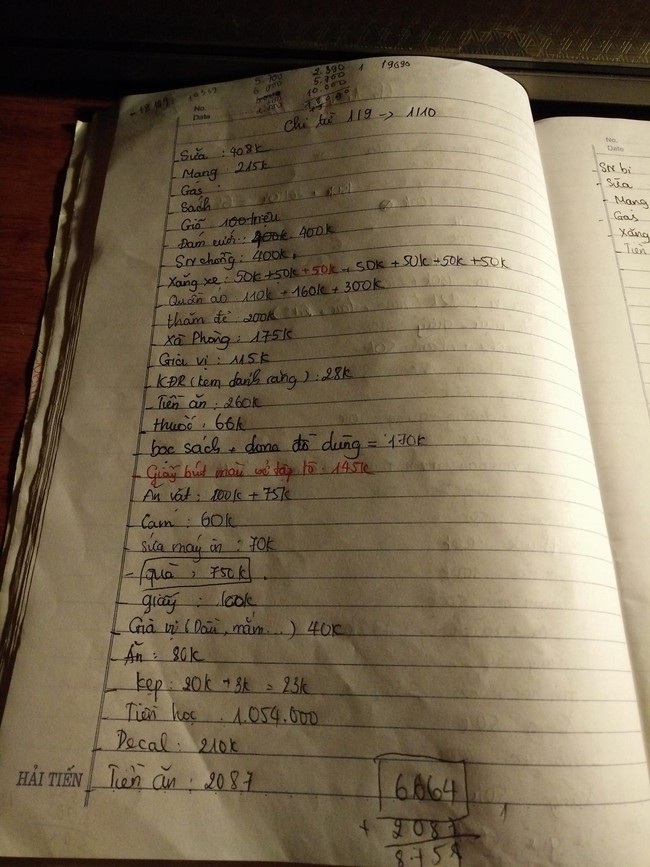 5.700 2.390 1 19690
6.000 5.700
10.000
No.
Date
Chi từ 1/9 -> 1/10
- Sữa : 408k
- Mạng : 215k
- Gas :
- Sách
- Giỗ 100 triệu
- Đám cưới : 400k
- SN chồng : 400k.
- Xăng xe : 50k + 50k + 50k + 50k + 50k + 50k + 50k
- Quần áo 110k + 160k + 300k
- thăm đẻ 200k
- Xà Phòng : 175k
- Gia vị : 115k
- KĐR (kem đánh răng) : 28k
- Tiền ăn : 260k
- thuốc : 66k
- bọc sách + dụng đồ dùng = 170k
- Giấy bút màu vở tập tô 145k
- Ăn vặt : 100k + 75k
- Cam : 60k
- sửa máy in : 70k
- quà : 750k
- giấy : 100k
- Gia vị (Dầu, mắm...) 40k
- Ăn : 80k
kẹp : 20k + 3k = 23k
- Tiền học : 1.054.000
- Decal : 210k
- Tiền ăn : 2087
6664
+ 2087
8.758
HẢI TIẾN
No.
Date
SN bi
- Sữa
- Mạng
- Gas
- Xăng
- Tiền